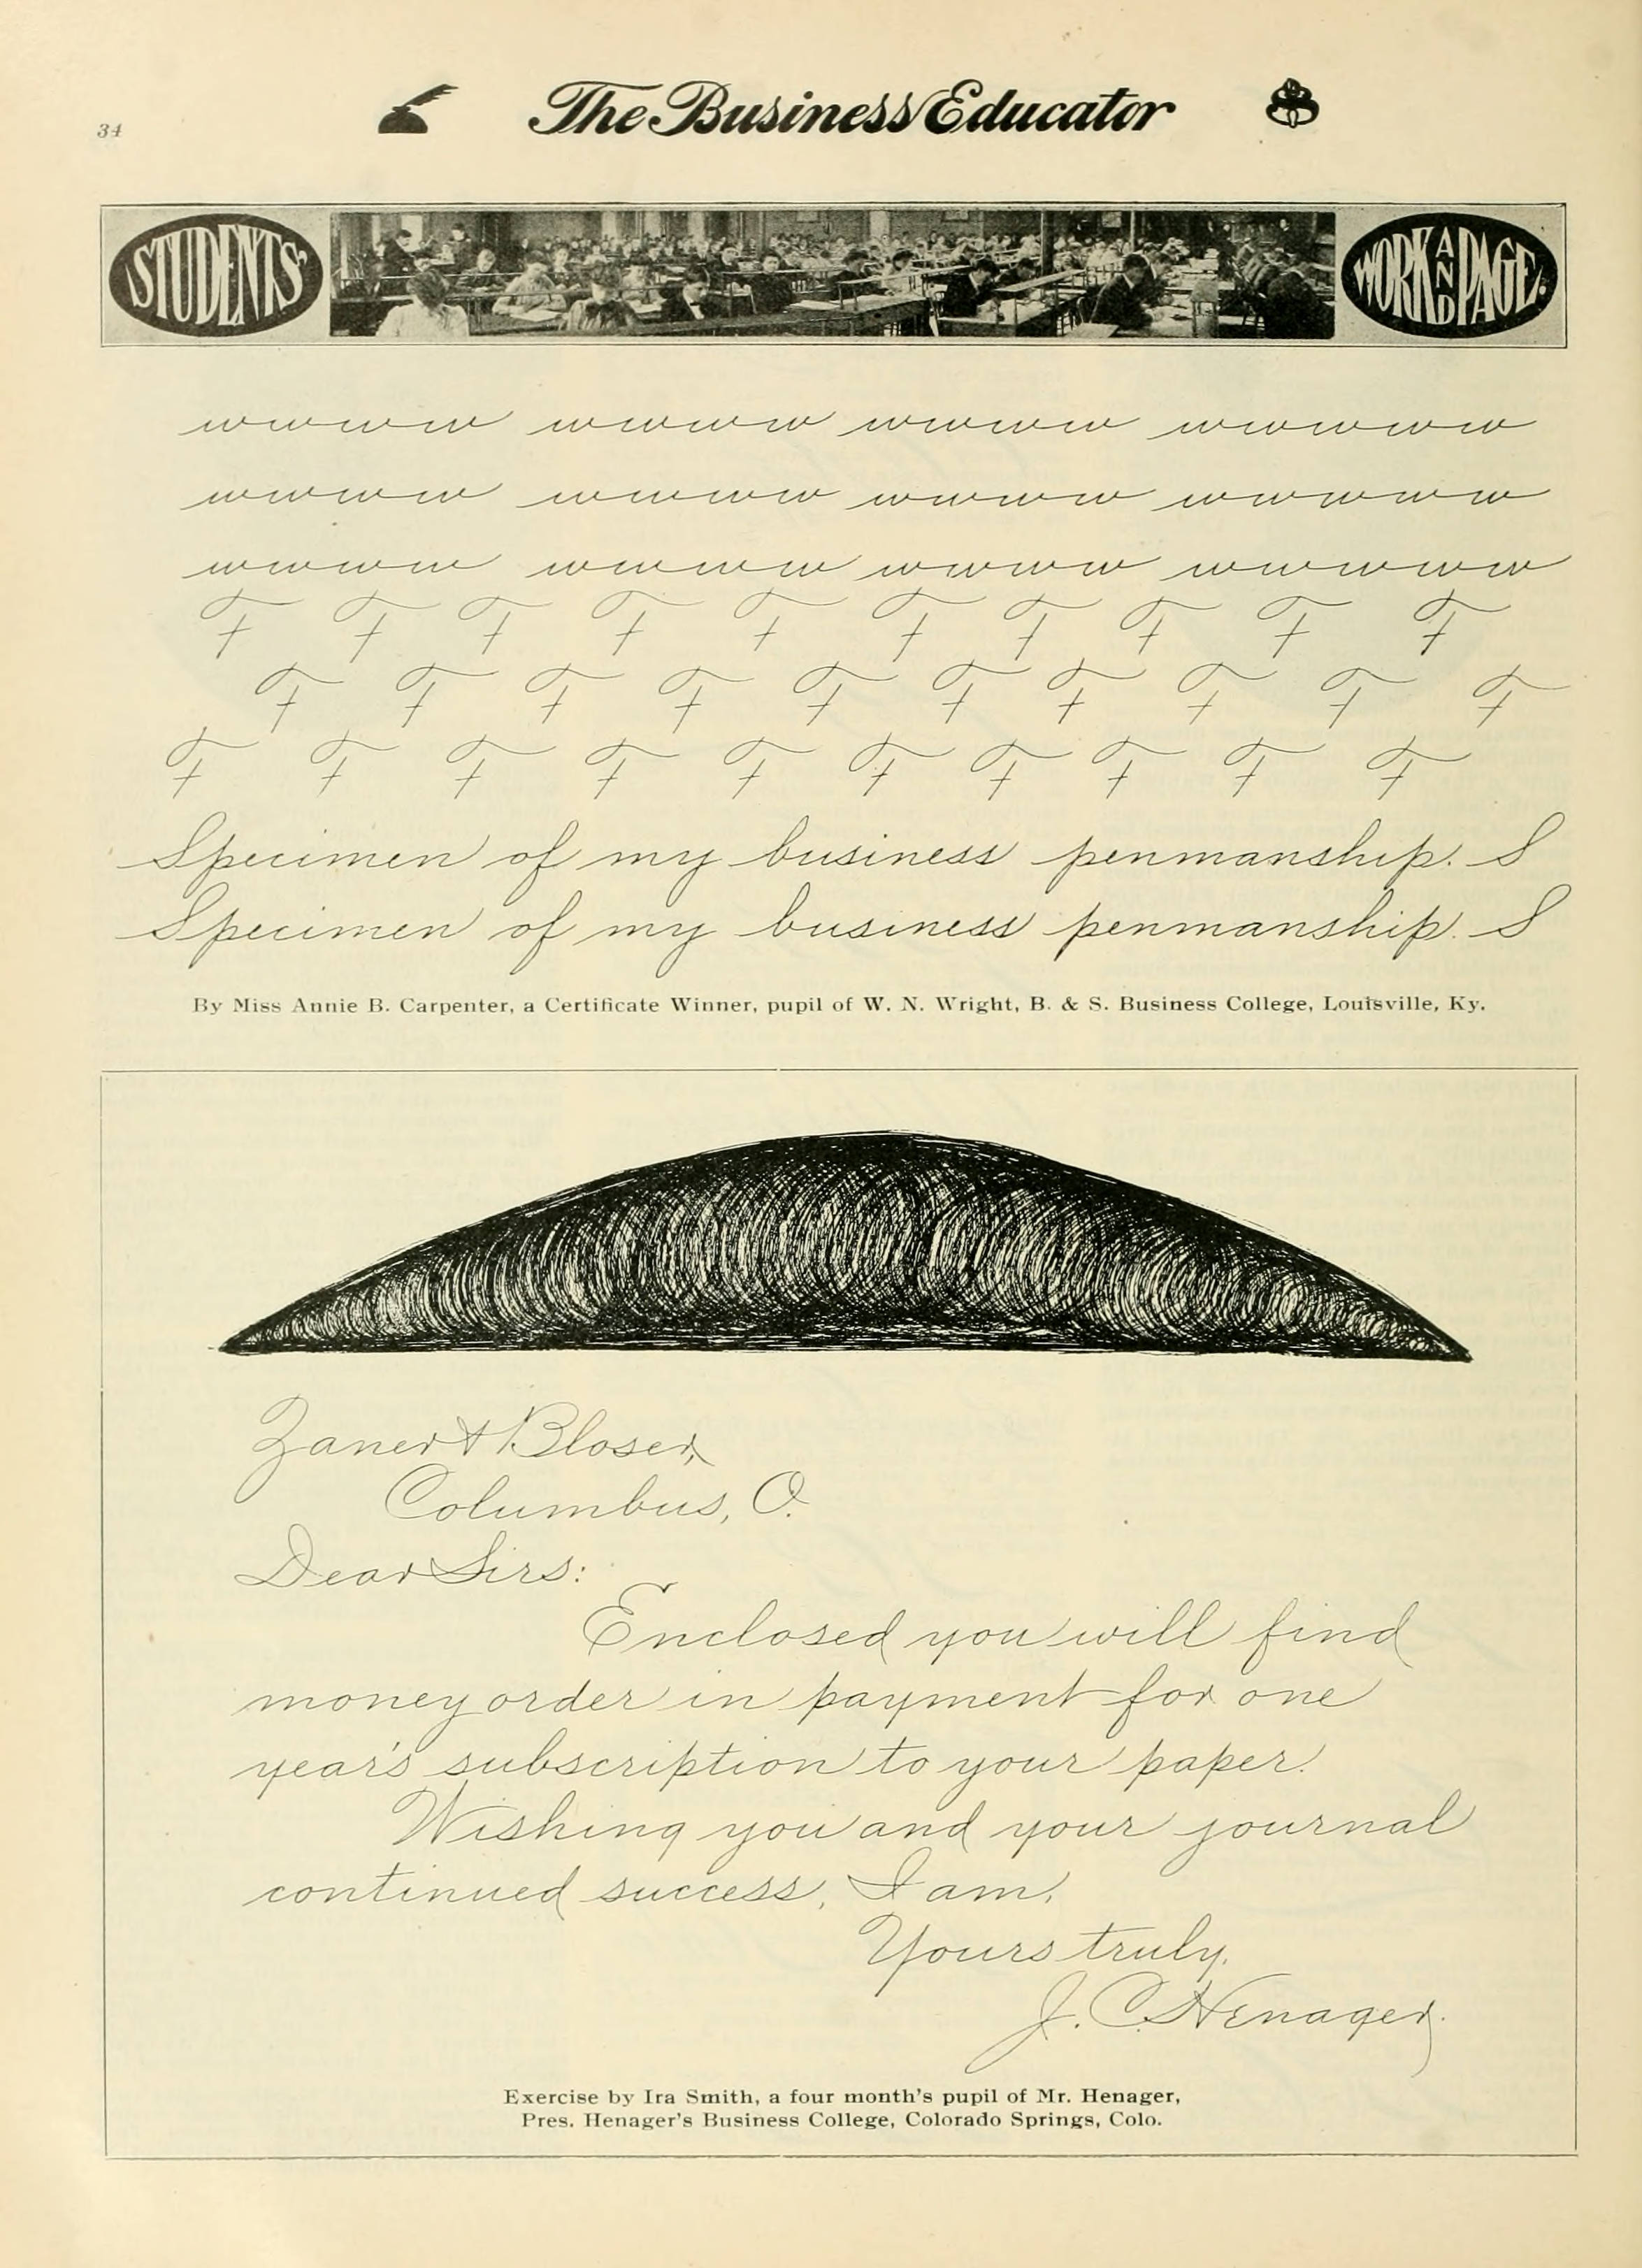 34
The Business Educator
STUDENTS' WORK AND PAGE.
wwwww wwwww wwwww wwwwww
wwwww wwwww wwwww wwwwww
wwwww wwwww wwwww wwwwww
F F F F F F F F F F
F F F F F F F F F F
F F F F F F F F F F
Specimen of my business penmanship. S
Specimen of my business penmanship. S
By Miss Annie B. Carpenter, a Certificate Winner, pupil of W. N. Wright, B. & S. Business College, Louisville, Ky.
Zaner & Bloser,
Columbus, O.
Dear Sirs:
Enclosed you will find
money order in payment for one
year's subscription to your paper.
Wishing you and your journal
continued success, I am,
Yours truly,
J. C. Henager.
Exercise by Ira Smith, a four month's pupil of Mr. Henager,
Pres. Henager's Business College, Colorado Springs, Colo.